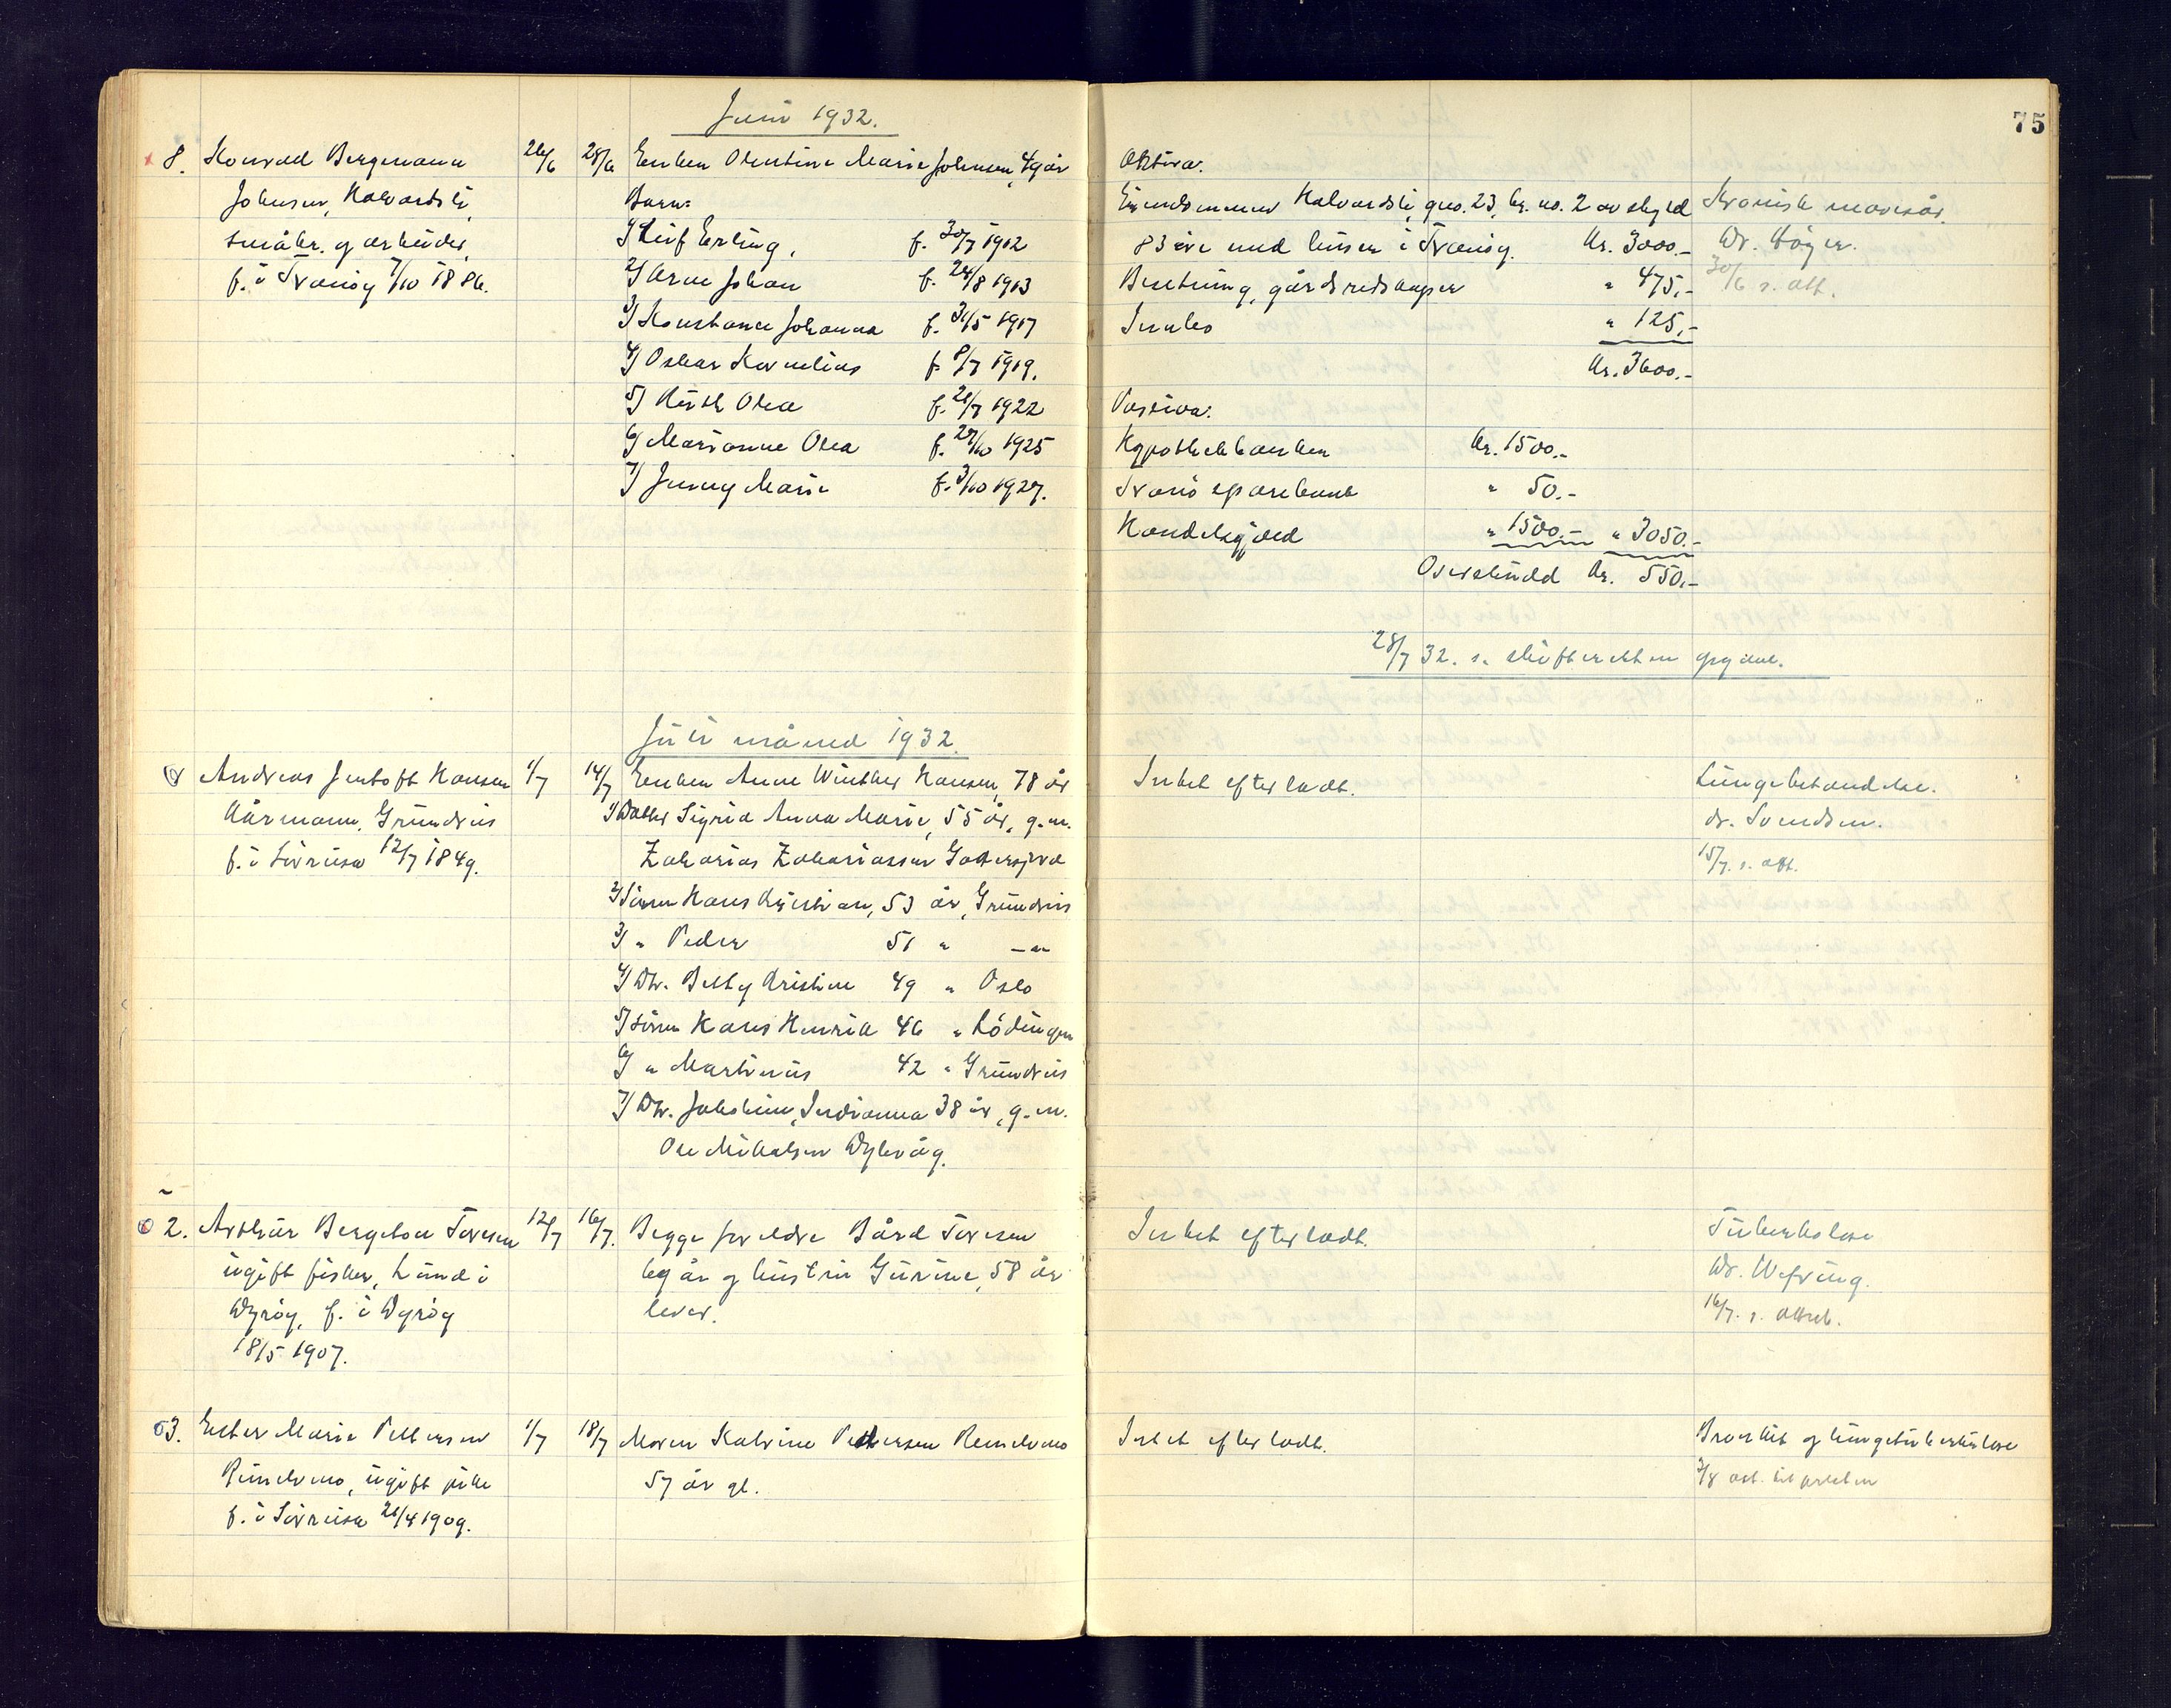 75
Juni 1932.
8. Konrad Bergmann
Johnsen, Halvardsli,
småbr. og arbeider,
f. i Tranøy 7/10 1886.
26/6 28/6
Enken Olentine Marie Johnsen, 49 år
Barn:
1) Leif Erling, f. 30/7 1912
2) Arne Johan f. 24/8 1913
3) Konstance Johanna f. 31/5 1917
4) Oskar Kornelius f. 8/7 1919.
5) Ruth Olea f. 21/7 1922
6) Marianne Olea f. 27/10 1925
7) Jenny Marie f. 3/10 1927.
Aktiva:
Eiendommen Halvardsli, gno. 23, br. no. 2 av skyld
83 øre med huser i Tranøy. Kr. 3000.-
Besetning, gårdsredskaper " 475,-
Innbo " 125,-
Kr. 3600.-
Passiva:
Hypothekbanken kr. 1500.-
Tranø sparebank " 50.-
Handelsgjeld " 1500.- " 3050.-
Overskudd kr. 550.-
Kronisk mavesår.
Dr. Høyer.
30/6 s. att.
28/7 32. s. skifteretten
Juli måned 1932.
Andreas Jentoft Hansen
Kårmann, Grundvis
f. i Sørreisa 12/7 1849.
1/7 14/7
Enken Anne Winther Hansen, 78 år
1) Datter Sigrid Anna Marie, 55 år, g.m.
Zakarias Zakariassen
2) Sønn Hans Kristian, 53 år, Grundvis
3) " Peder 51 " -"-
4) Dtr. Betty Kristine 49 " Oslo
5) Sønn Hans Henrik 46 " Lødingen
6) " Martinus 42 " Grundvis
7) Dtr. Jakobine, Indianna 38 år, g.m.
Ole Mikalsen Dylevåg.
Intet efterladt.
Lungebetendelse.
dr. Svendsen.
15/7. s. att.
2. Arthur Bergeton Toresen
ugift fisker, Lund i
Dyrøy, f. i Dyrøy
18/5 1907.
12/7 16/7.
Begge foreldre Bård Toresen
69 år og hustru Gurine, 58 år
lever.
Intet efterladt.
Tuberkulose
Dr. Wefring.
16/7. s. attest.
3. Ester Marie Pettersen
Reindmo, ugift pike
f. i Sørreisa 21/4 1909.
1/7 18/7
Moren Katrine Pettersen Reindmo
57 år gl.
Intet efterladt.
Bronkit og lungetuberkulose